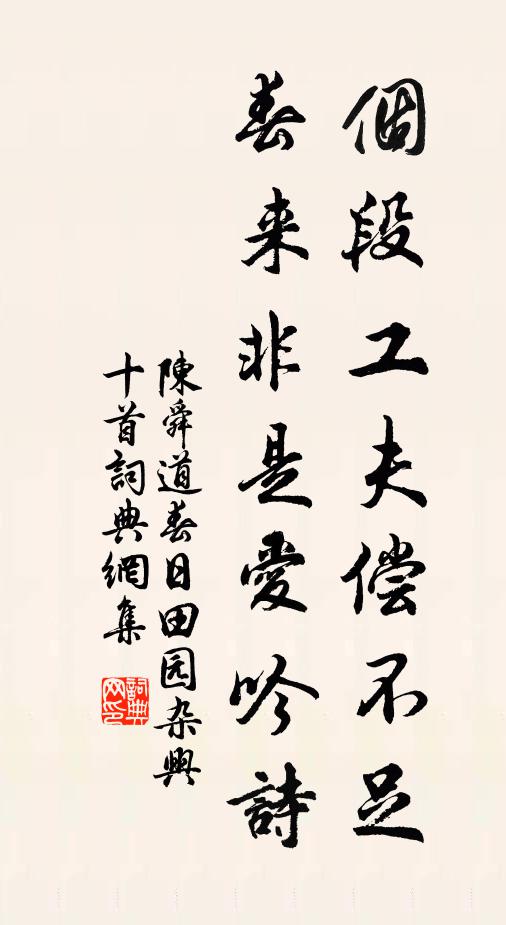 個段工夫偿不足
春来非是愛吟詩
陳舜道春日田园杂興
十首詞典網集
詞典
网印